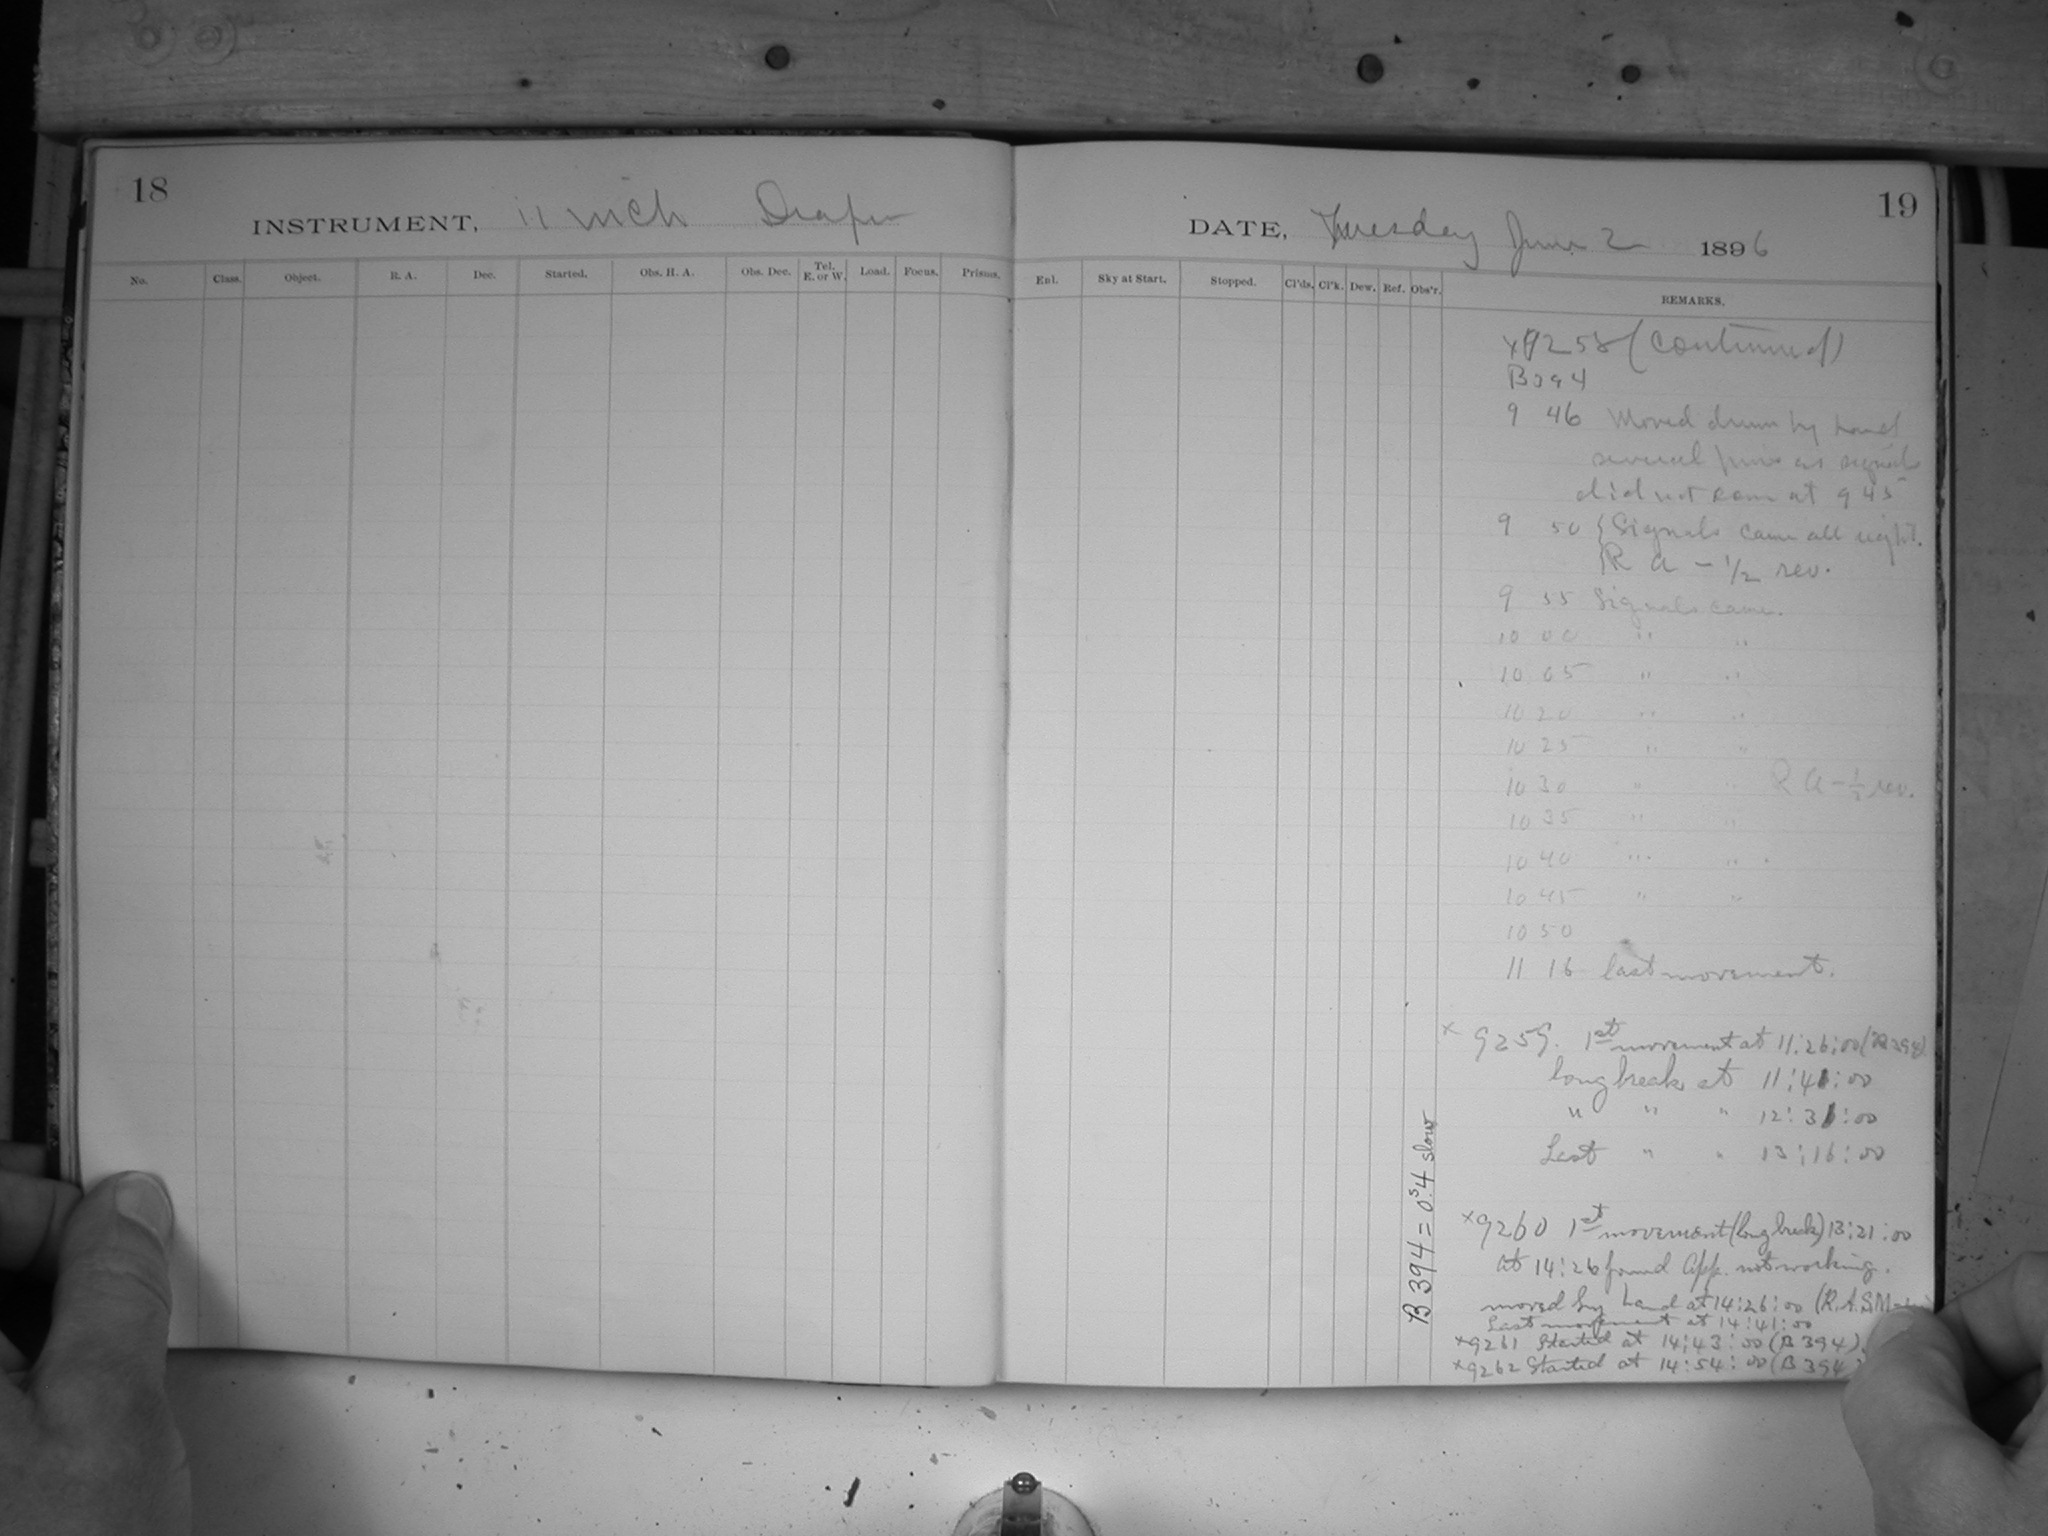 18
INSTRUMENT, 11 inch Draper
DATE, Tuesday June 2 1896
19
No. Class. Object. R. A. Dec. Started. Obs. H. A. Obs. Dec. Tel. E. or W. Load. Focus. Prisms. Enl. Sky at Start. Stopped. Cl'ds. Cl'k. Dew. Ref. Obs'r. REMARKS.
x9258 (continued)
B394
9 46 Moved drum by hand
several as signals
did not come at 9 45
9 50 Signals came all right.
R a - 1/2 rev.
9 55 Signals came.
10 00 " "
10 05 " "
10 20 " "
10 25 " "
10 30 " " R a - 1/2 rev.
10 35 " "
10 40 " "
10 45 " "
10 50
11 16 last movement.
x 9259. 1st movement at 11:26:00 (B394)
long break at 11:41:00
" " " 12:31:00
Last " " 13:16:00
x9260 1st movement (long break) 13:21:00
at 14:26 found App. not working.
moved by hand at 14:26:00 (R.A.S.M
Last movement at 14:41:00
x9261 Started at 14:43:00 (B394).
x9262 Started at 14:54:00 (B394
B 394 = 0s.4 slow